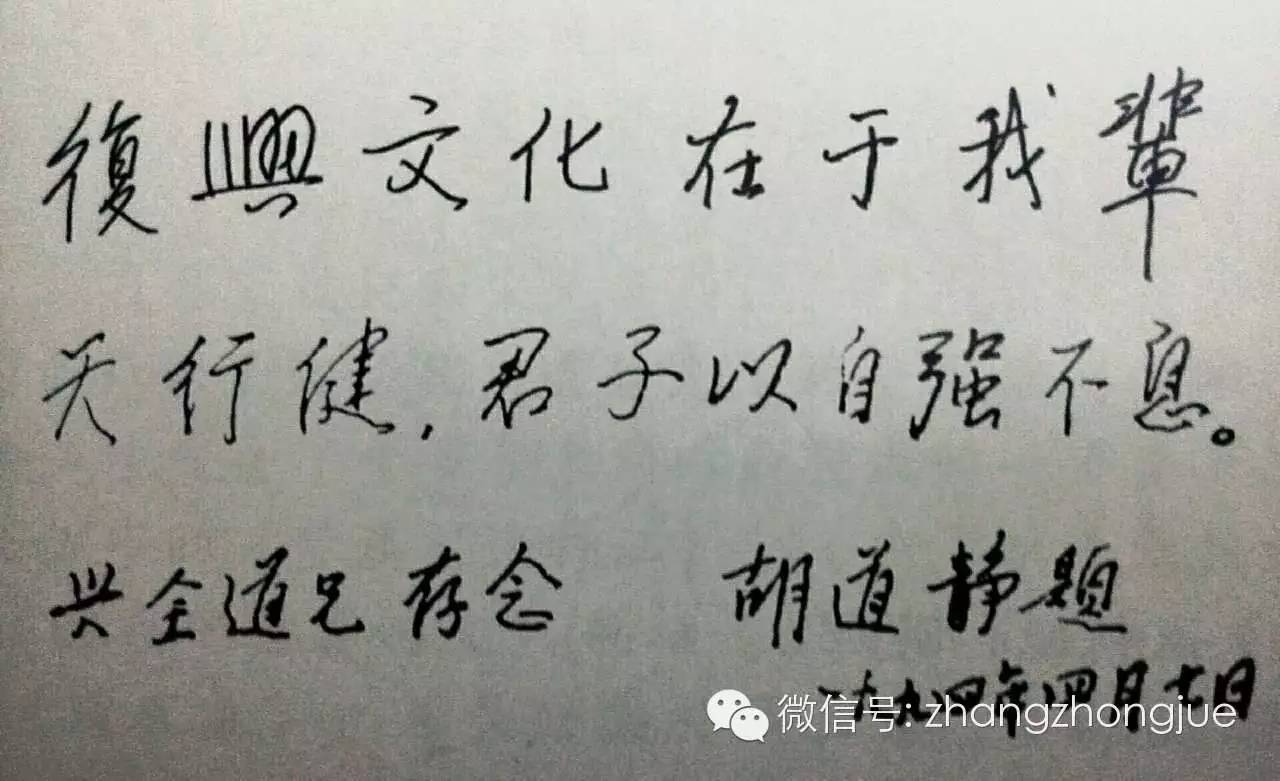 復興文化在于我輩
天行健,君子以自强不息。
兴全道兄存念 胡道静题
一九九四年四月七日
微信号: zhangzhongjue